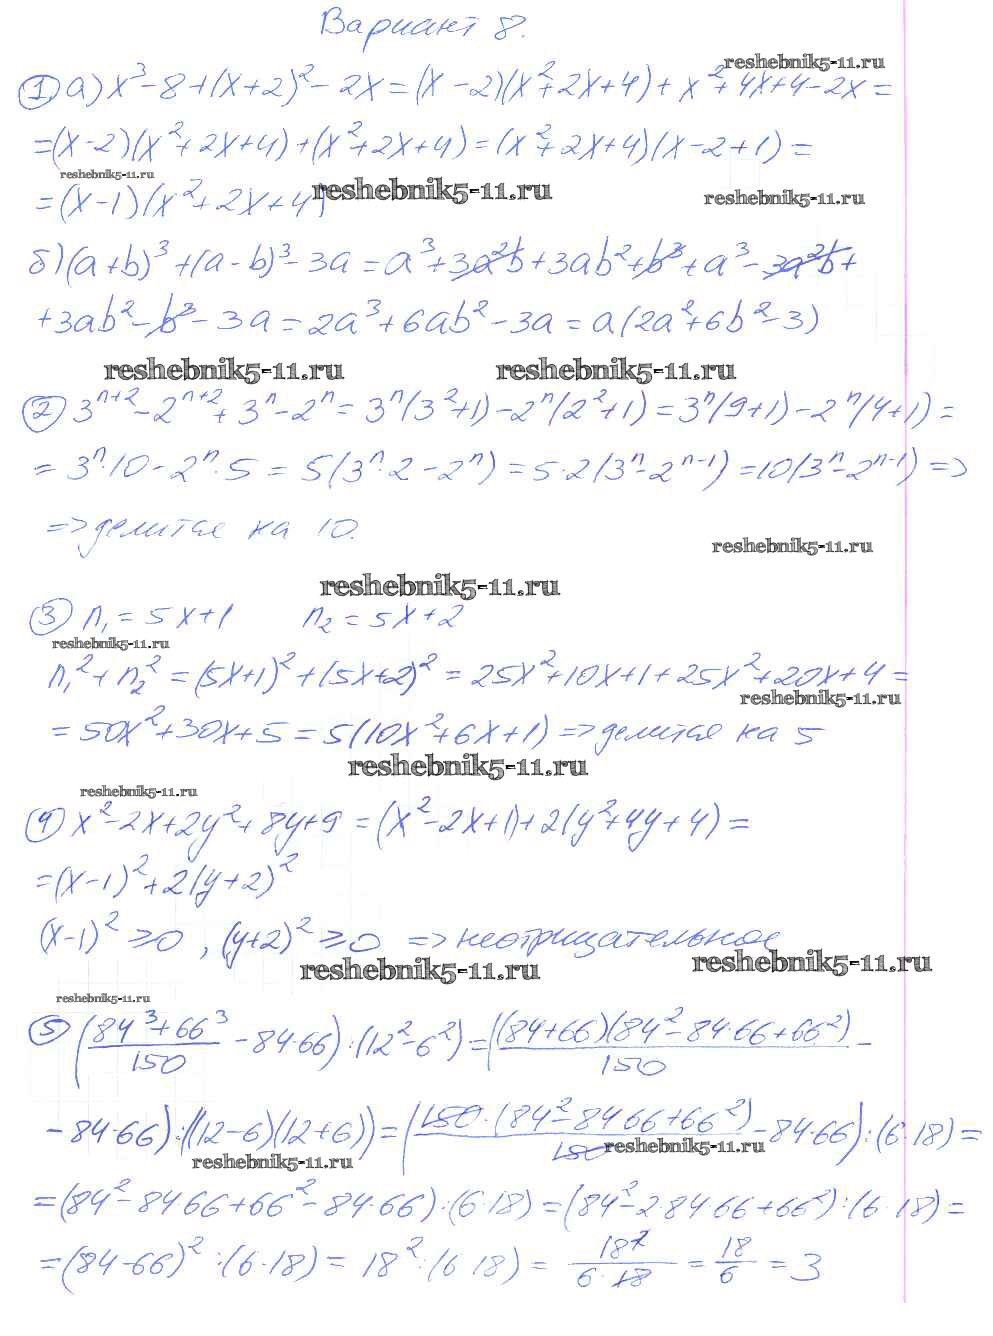 Вариант 8.
reshebnik5-11.ru
① а) x³ - 8 + (x+2)² - 2x = (x-2)(x²+2x+4) + x²+4x+4-2x =
= (x-2)(x²+2x+4) + (x²+2x+4) = (x²+2x+4)(x-2+1) =
reshebnik5-11.ru reshebnik5-11.ru reshebnik5-11.ru
= (x-1)(x²+2x+4)
б) (a+b)³ + (a-b)³ - 3a = a³ + 3a²b + 3ab² + b³ + a³ - 3a²b +
+ 3ab² - b³ - 3a = 2a³ + 6ab² - 3a = a(2a²+6b²-3)
reshebnik5-11.ru reshebnik5-11.ru
② 3ⁿ⁺² - 2ⁿ⁺² + 3ⁿ - 2ⁿ = 3ⁿ(3²+1) - 2ⁿ(2²+1) = 3ⁿ(9+1) - 2ⁿ(4+1) =
= 3ⁿ·10 - 2ⁿ·5 = 5(3ⁿ·2 - 2ⁿ) = 5·2(3ⁿ - 2ⁿ⁻¹) = 10(3ⁿ - 2ⁿ⁻¹) =>
=> делится на 10.
reshebnik5-11.ru
reshebnik5-11.ru
③ n₁ = 5x+1 n₂ = 5x+2
reshebnik5-11.ru
n₁² + n₂² = (5x+1)² + (5x+2)² = 25x²+10x+1+25x²+20x+4 =
reshebnik5-11.ru
= 50x²+30x+5 = 5(10x²+6x+1) => делится на 5
reshebnik5-11.ru
reshebnik5-11.ru
④ x²-2x+2y²+8y+9 = (x²-2x+1)+2(y²+4y+4) =
= (x-1)²+2(y+2)²
(x-1)² ≥ 0, (y+2)² ≥ 0 => неотрицательное
reshebnik5-11.ru reshebnik5-11.ru
reshebnik5-11.ru
⑤ ((84³+66³)/150 - 84·66) : (12²-6²) = ((84+66)(84²-84·66+66²)/150 -
- 84·66) : ((12-6)(12+6)) = (150·(84²-84·66+66²)/150 - 84·66) : (6·18) =
reshebnik5-11.ru reshebnik5-11.ru
= (84²-84·66+66²-84·66) : (6·18) = (84²-2·84·66+66²) : (6·18) =
= (84-66)² : (6·18) = 18² : (6·18) = 18²/(6·18) = 18/6 = 3